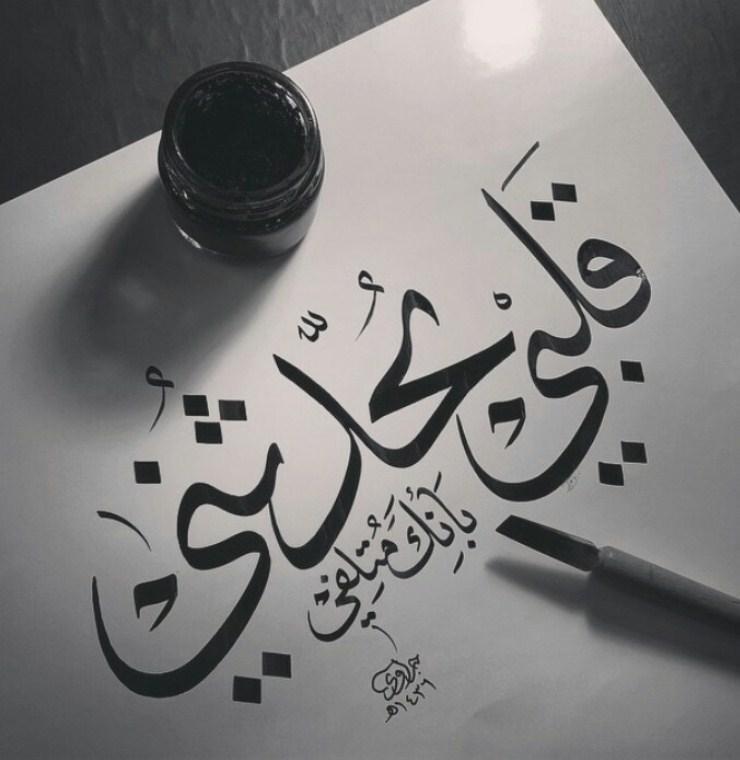 قَلْبي يُحدّثُني
بِأَنكَ مُتلِفي
١٤٣٦هـ